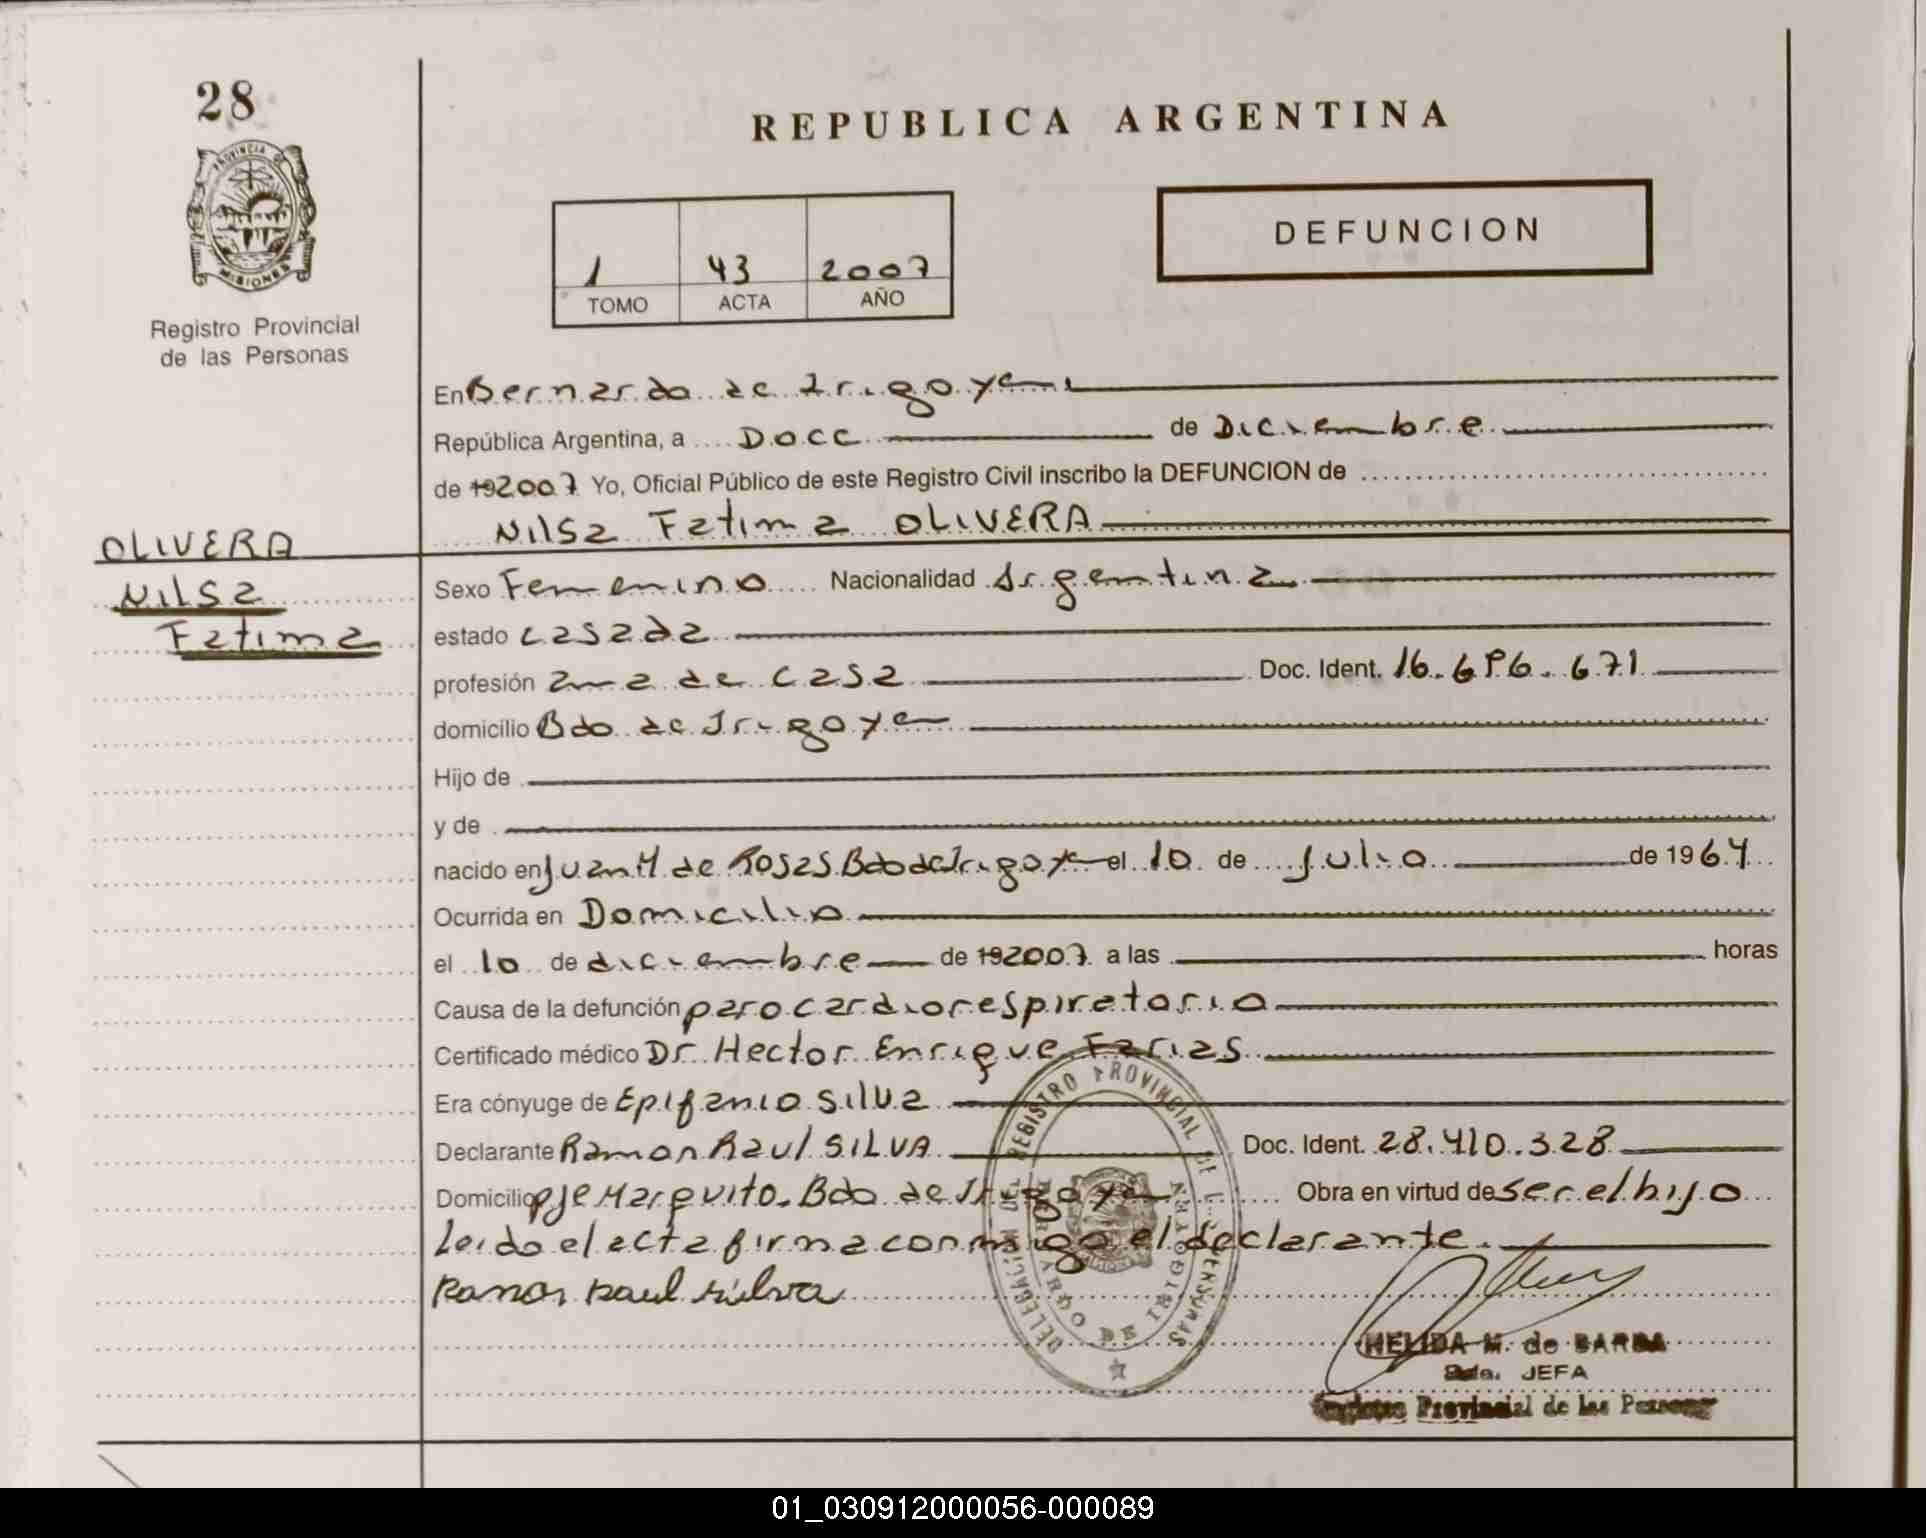 28
PROVINCIA DE
MISIONES
Registro Provincial
de las Personas
REPUBLICA ARGENTINA
1 43 2007
TOMO ACTA AÑO
DEFUNCION
En Bernardo de Irigoyen
República Argentina, a Doce de Diciembre
de 192007 Yo, Oficial Público de este Registro Civil inscribo la DEFUNCION de
Nilsa Fatima OLIVERA
OLIVERA
Nilsa
Fatima
Sexo Femenino Nacionalidad Argentina
estado casada
profesión ama de casa Doc. Ident. 16.696.671
domicilio Bdo de Irigoyen
Hijo de
y de
nacido en Juan M de Rosas Bdo de Irigoyen el 10 de Julio de 1964
Ocurrida en Domicilio
el 10 de diciembre de 192007 a las horas
Causa de la defunción paro cardiorespiratorio
Certificado médico Dr Hector Enrique Farias
Era cónyuge de Epifanio Silva
Declarante Ramon Raul SILVA Doc. Ident. 28.410.328
Domicilio pje Marquito. Bdo de Irigoyen Obra en virtud de ser el hijo
Leido el acta firma conmigo el declarante.
Ramon Raul Silva
DELEGACION DEL REGISTRO PROVINCIAL DE LAS PERSONAS
BERNARDO DE IRIGOYEN
HELIDA M. de BARBA
JEFA
Provincial de las Personas
01_030912000056-000089